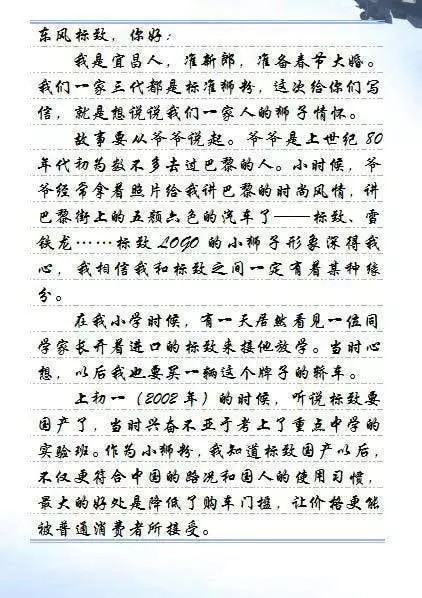 东风标致，你好：
我是宜昌人，准新郎，准备春节大婚。
我们一家三代都是标准狮粉，这次给你们写
信，就是想说说我们一家人的狮子情怀。
故事要从爷爷说起。爷爷是上世纪80
年代初为数不多去过巴黎的人。小时候，爷
爷经常拿着照片给我讲巴黎的时尚风情，讲
巴黎街上的五颜六色的汽车了——标致、雪
铁龙……标致LOGO的小狮子形象深得我
心，我相信我和标致之间一定有着某种缘
分。
在我小学时候，有一天居然看见一位同
学家长开着进口的标致来接他放学。当时心
想，以后我也要买一辆这个牌子的轿车。
上初一（2002年）的时候，听说标致要
国产了，当时兴奋不亚于考上了重点中学的
实验班。作为小狮粉，我知道标致国产以后，
不仅更符合中国的路况和国人的使用习惯，
最大的好处是降低了购车门槛，让价格更能
被普通消费者所接受。